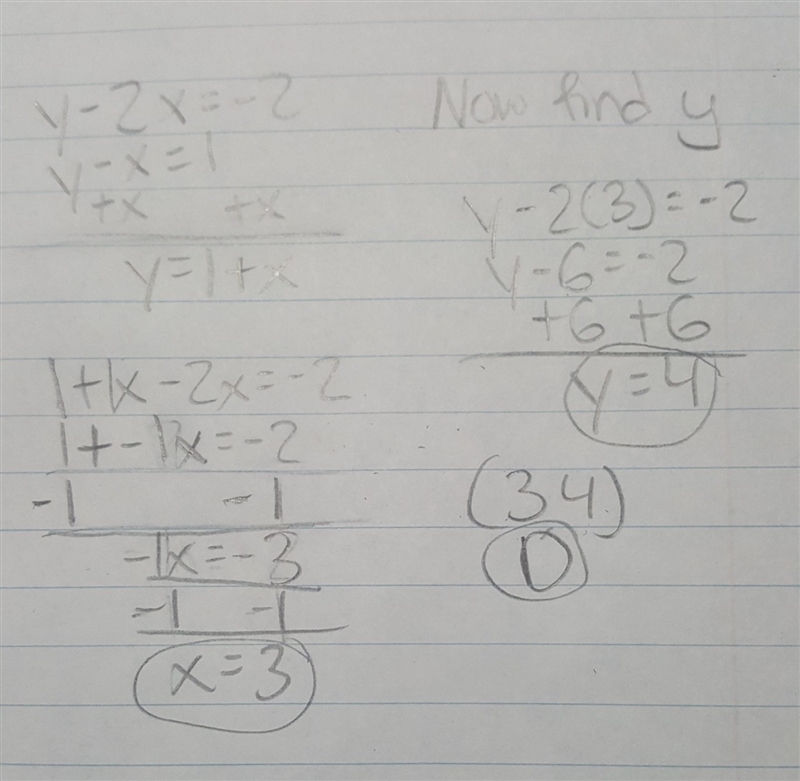 y-2x=-2
y-x=1
+x +x
y=1+x
1+1x-2x=-2
1+-1x=-2
-1 -1
-1x=-3
-1 -1
x=3
Now find y
y-2(3)=-2
y-6=-2
+6 +6
y=4
(34)
D